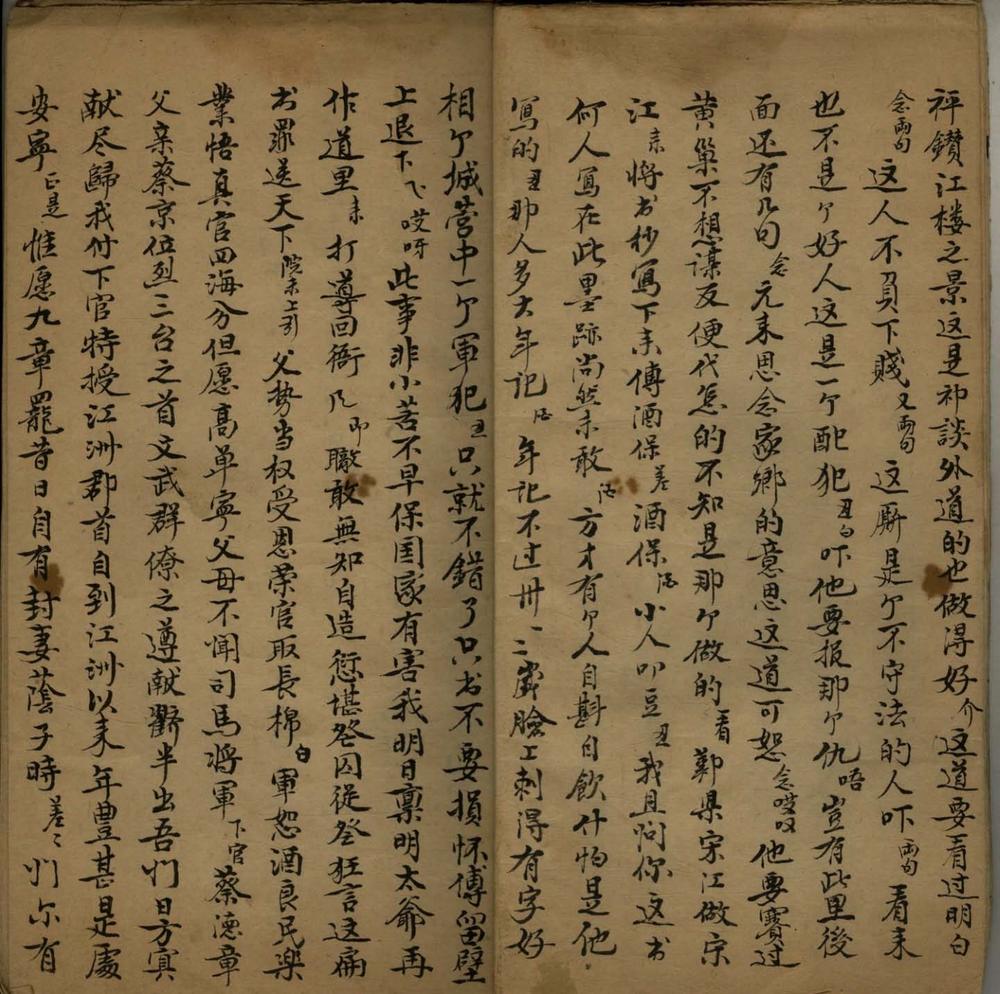 評鑽江楼之景这是祁談外道的也做得好介这道要看过明白
念兩句这人不員下賤又兩句这厮是个不守法的人吓兩句看来
也不是个好人这是一个配犯丑白吓他要报那个仇唔豈有此里後
面还有几句念元来思念家鄉的意思这道可恕念哎哎他要賽过
黄巢不想謀反便代怎的不知是那个做的看鄆県宋江做宋
江末将书秒寫下来傳酒保差酒保酒小人叩豆丑我且问你这书
何人寫在此墨跡尚然未敢酒方才有个人自斟自飲什怕是他
寫的丑那人多大年记酒年记不过卅二三歲臉上刺得有字好
相个城营中一个軍犯丑只就不錯了只书不要損怀傳留壁
上退下飞哎呀此事非小若不早保国家有害我明日禀明太爺再
作道里末打導回衙凡卯職敢無知自造愆堪登囚従登狂言这扁
书罪送天下院末上引父势当权受恩荣官取長棉白軍恕酒良民樂
業悟真官四海分但愿高单寧父母不闻司馬将軍下官蔡德章
父亲蔡京位烈三台之首文武群僚之遵献爵半出吾们日方寅
献尽歸我付下官特授江洲郡首自到江洲以来年豊甚是處
安寧正是惟愿九章罷昔日自有封妻蔭子時差们尓有